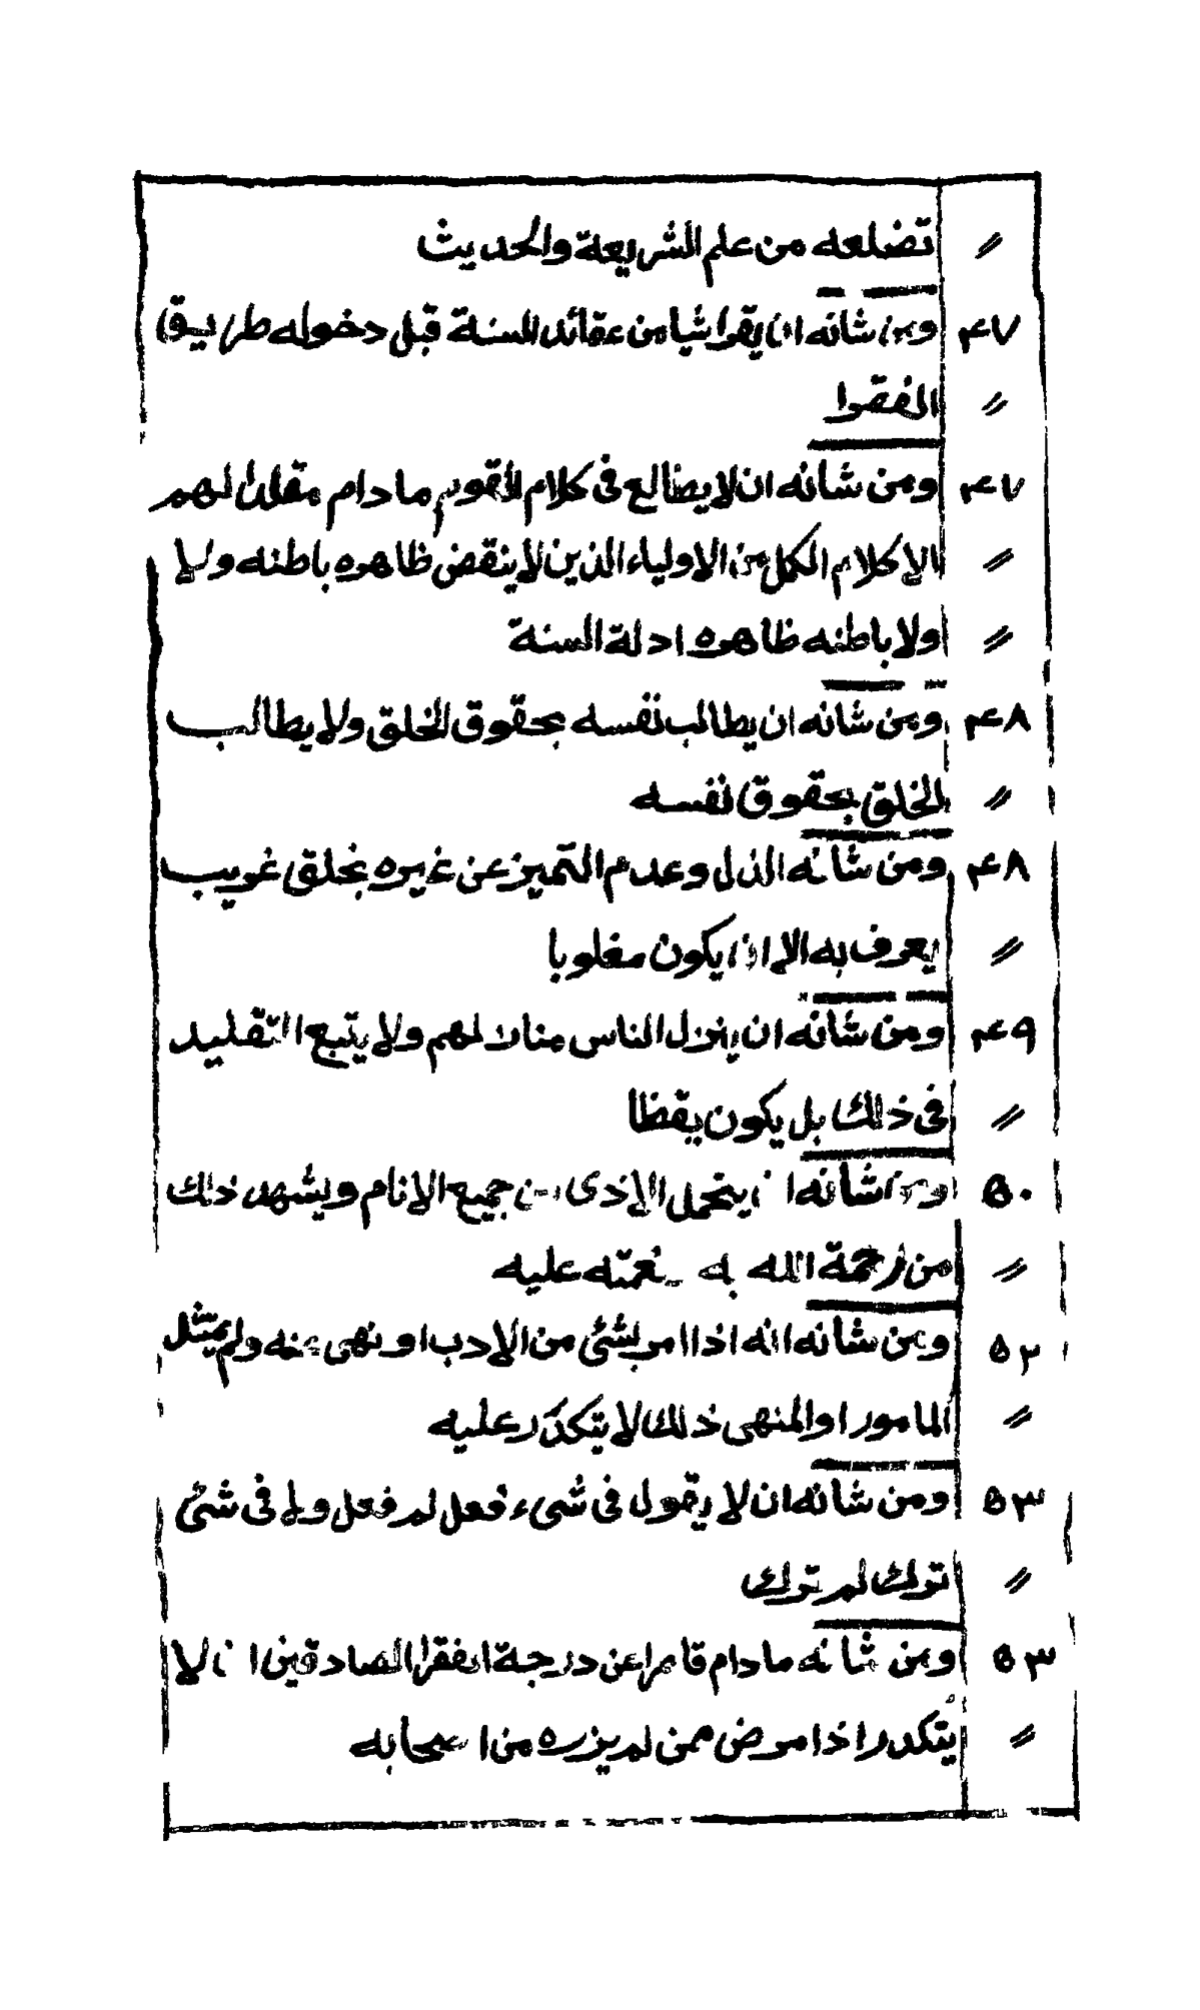 〃 تضلعه من علم الشريعة والحديث
۴۷ ومن شانه ان يقرا شيا من عقائد السنة قبل دخوله طريق
〃 الفقرا
۴۷ ومن شانه ان لا يطالع فى كلام القوم ما دام مقلدا لهم
〃 الا كلام الكمل من الاولياء الذين لا ينقض ظاهره باطنه ولا
〃 ولا باطنه ظاهره ادلة السنة
۴۸ ومن شانه ان يطالب نفسه بحقوق الخلق ولا يطالب
〃 الخلق بحقوق نفسه
۴۸ ومن شانه الذل وعدم التميز عن غيره بخلق غريب
〃 يعرف به الا ان يكون مغلوبا
۴۹ ومن شانه ان ينزل الناس منازلهم ولا يتبع التقليد
〃 فى ذلك بل يكون يقظا
۵۰ ومن شانه ان يتحمل الاذى من جميع الانام ويشهد ذلك
〃 من رحمة الله به نعمته عليه
۵۲ ومن شانه انه اذا امر بشئ من الادب او نهى عنه ولم يمتثل
〃 المامور او المنهى ذلك لا يتكدّر عليه
۵۳ ومن شانه ان لا يقول فى شىء فعل لم فعل ولا فى شئ
〃 ترك لم ترك
۵۳ ومن شانه ما دام قاصرا عن درجة الفقرا الصادقين ان لا
〃 يتكدر اذا مرض ممن لم يزره من اصحابه